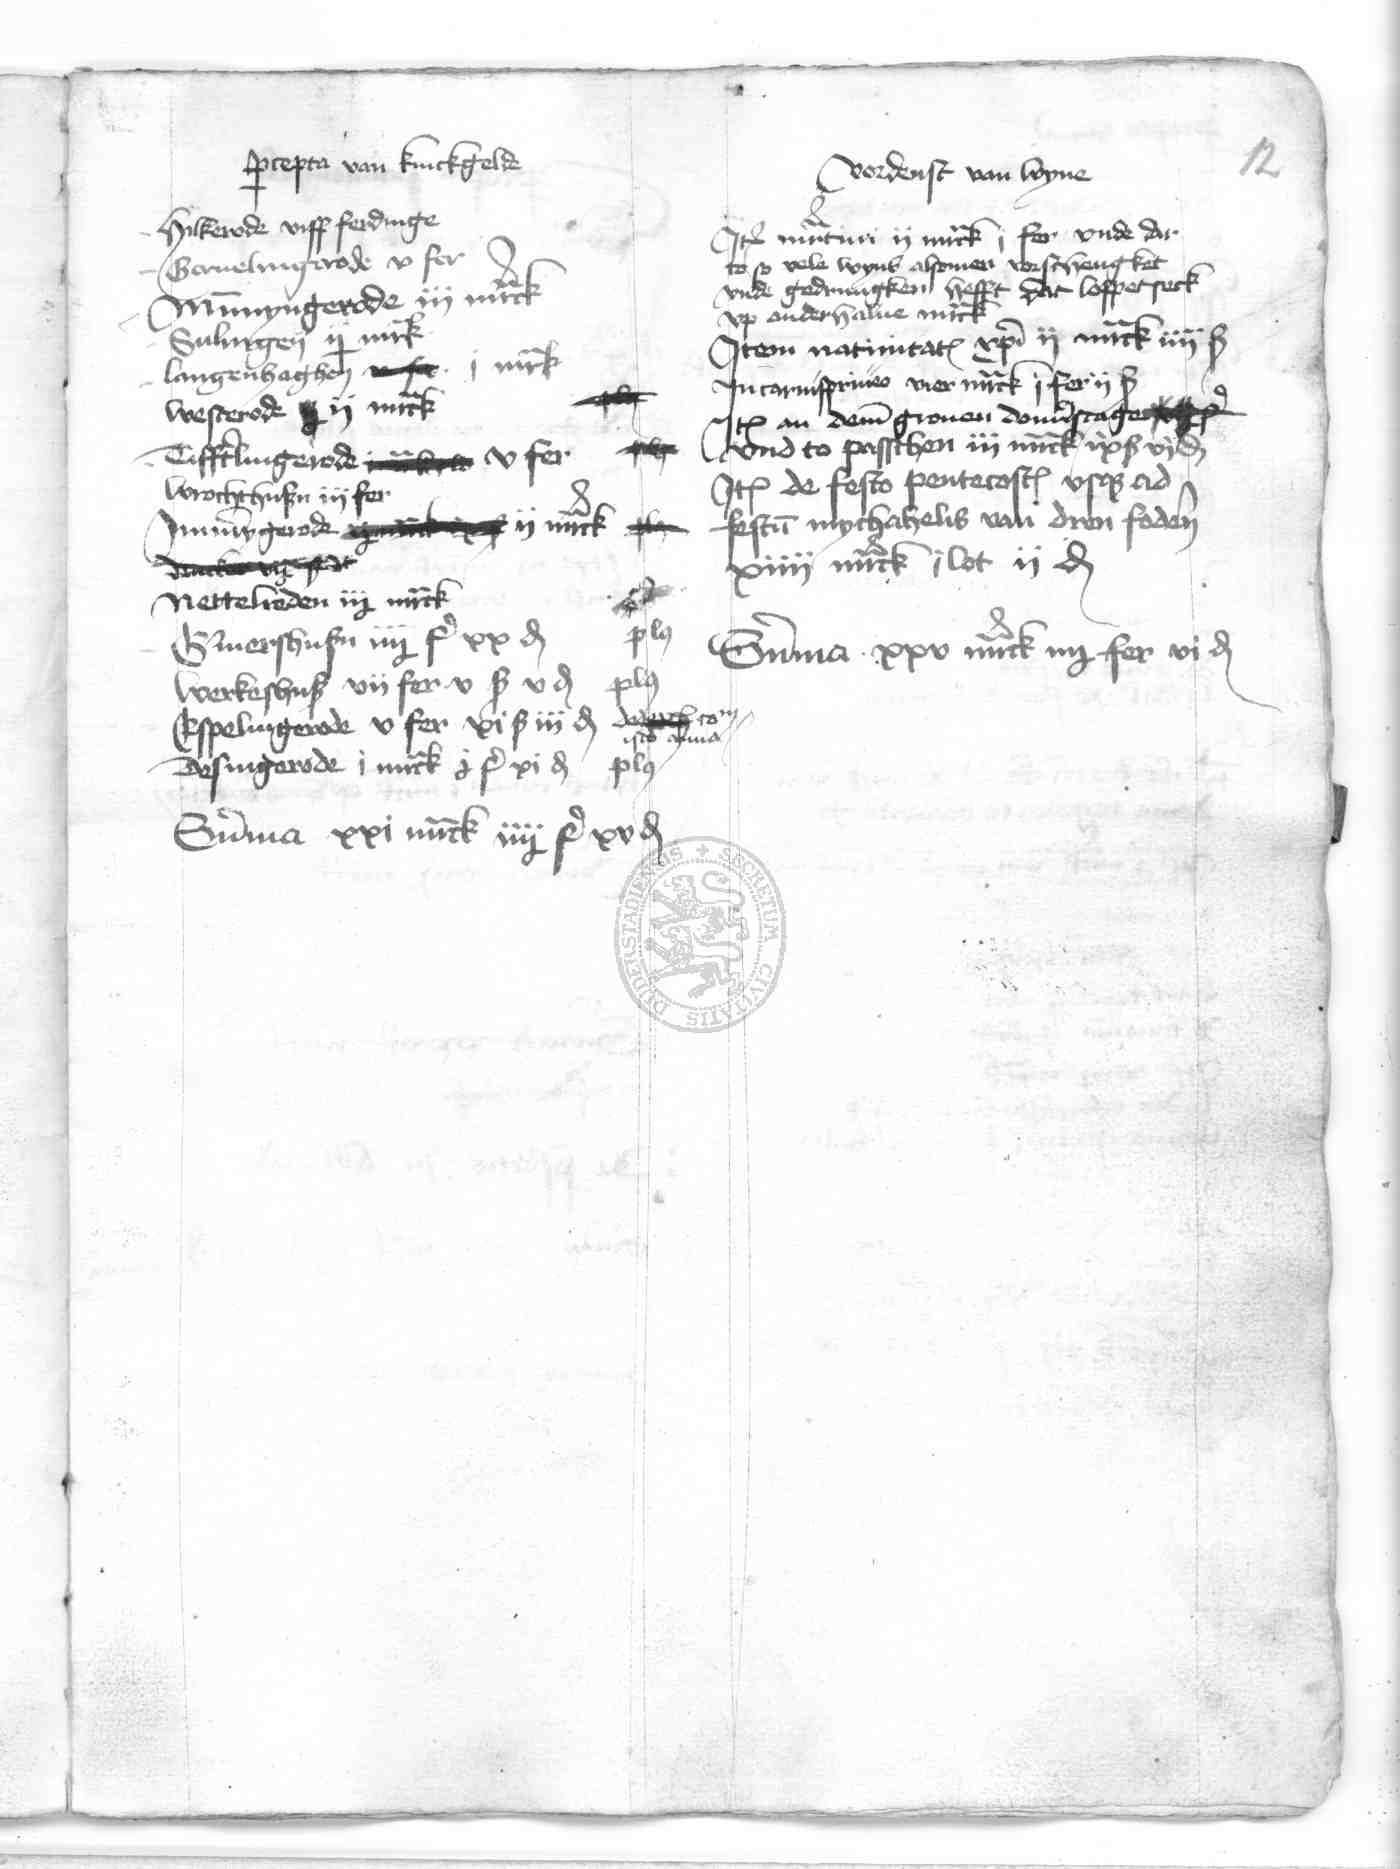 12
p̱cepta van kuckgelde
Hilkerode viff ferdinge
Geruelingerode v fer
Mu̅nyngerode iij mr̅ck
Sulingen ij mrk
langenhaghen i mr̅k
westerode ij mr̅ck
Tifftlingerode v fer
wrochthusen iij fer
Immyngerode ij mr̅ck
Nettelreden iij mr̅ck
Euershusen iiij f xx d plus
werkeshuß vii fer v ß v d plus
Espelingerode v fer xi ß iii d
Desingerode i mr̅ck i f xi d plus
Summa xxi mr̅ck iiij f xv d
vordenst van wyne
Ite̅ martini ii mr̅ck i fer vnde dar
to so vele wyns alsomen vorschengket
vnde gedrungken hefft dat loppet seck
vp anderhalue mrck
Item natiuitat xp̅i ii mr̅ck iiii ß
In carnispriuio vier mr̅ck i fer ii ß
It an dem gronen donrstage
vnd to passchen iii mr̅ck ix ß vi d
It de festo pentecost vsq ad
festu̅ mychahelis van dren foden
xiiii mr̅ck i lot ii d
Summa xxv mr̅ck iij fer vi d
SECRETUM CIVITATIS DUDERSTADIENSIS